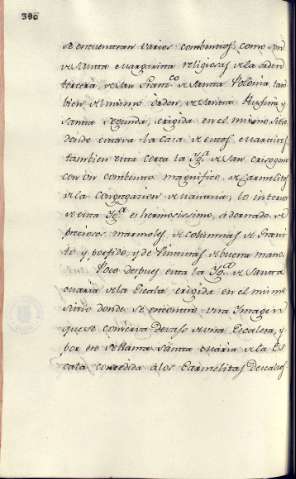 390
se encuentran varios combentos, como son
de Santa Margarita religiosas de la orden
tercera de San Franco de Santa Polonia tam
bien del mismo orden, de Santa Rufina y
Santa Segunda, erigida en el mismo sitio
donde estava la casa de estas
tambien esta cerca la Iga de San Crisogono
con un combento magnifico de Carmelitas
de la congregacion de Mantua, lo interno
de esta Iga es hermosissimo, adornado de
preciosos marmoles de columnas de Grani
to y porfido, y de Pinturas de buena mano.
Poco despues esta la Iga de Santa
Maria de la Escala erigida en el mismo
sitio donde se encontro una Imagen
que se debaxo de una Escalera, y
por eso se llama Santa Maria de la Es
cala concedida a los Carmelitas Descalzos